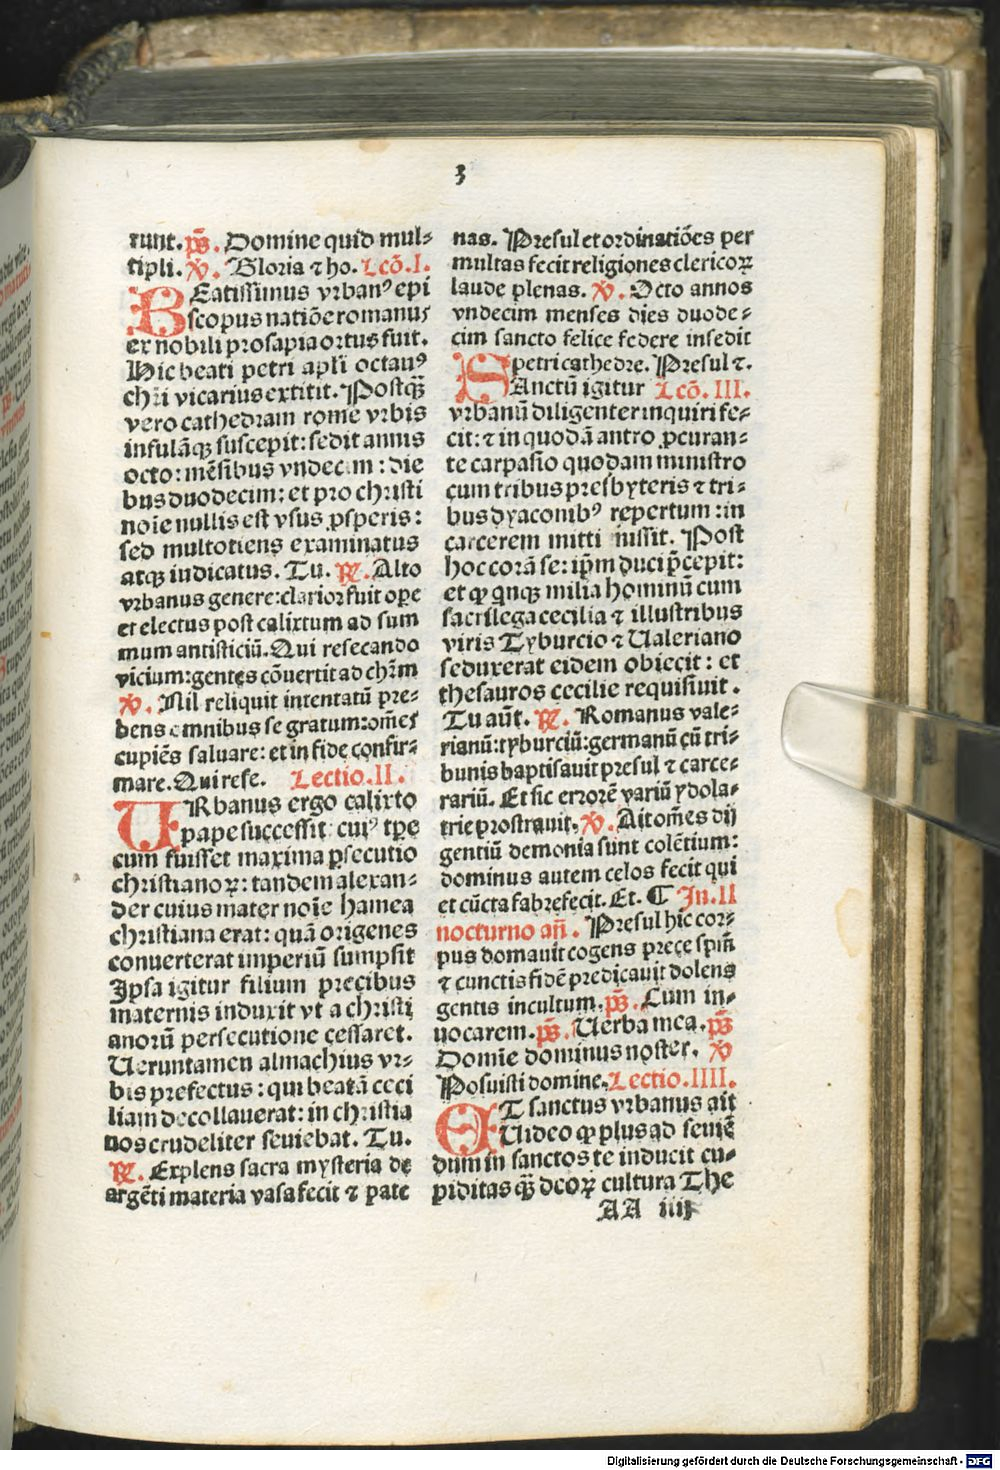 3
runt. ps̄. Domine quid mul⸗
tipli. ℣. Gloria ⁊ ho. Lcō. I.
BEatissimus vrbanꝰ epi
scopus natiōe romanus
ex nobili prosapia ortus fuit.
Hic beati petri apl̄i octauꝰ
chr̄i vicarius extitit. Postqȝ̄
vero cathedram rome vrbis
infulāqȝ suscepit: sedit annis
octo: mēsibus vndecim: die
bus duodecim: et pro christi
noīe nullis est vsus ꝓsperis:
sed multotiens examinatus
atqȝ iudicatus. Tu. ℟. Alto
vrbanus genere: clarior fuit oꝑe
et electus post calixtum ad sum
mum antisticiū. Qui resecando
vicium: gentes cōuertit ad chr̄m
℣. Nil reliquit intentatū pre⸗
bens omnibus se gratum: om̄es
cupiēs saluare: et in fide confir⸗
mare. Qui rese. Lectio. II.
URbanus ergo calixto
pape successit: cuiꝰ tꝑe
cum fuisset maxima ꝑsecutio
christianoꝝ: tandem alexan⸗
der cuius mater noīe hamea
christiana erat: quā origenes
conuerterat imperiū sumpsit
Ipsa igitur filium precibus
maternis induxit vt a christi
anorū persecutione cessaret.
Ueruntamen almachius vr⸗
bis prefectus: qui beatā ceci
liam decollauerat: in christia
nos crudeliter seuiebat. Tu.
℟. Explens sacra mysteria de
argēti materia vasa fecit ⁊ pate
nas. Presul et ordinatiōes per
multas fecit religiones clericoꝝ
laude plenas. ℣. Octo annos
vndecim menses dies duode⸗
cim sancto felice federe insedit
petri cathedre. Presul ⁊.
SAnctū igitur Lcō. III.
vrbanū diligenter inquiri fe⸗
cit: ⁊ in quodā antro ꝓcuran⸗
te carpasio quodam ministro
cum tribus presbyteris ⁊ tri⸗
bus dyaconibꝰ repertum: in
carcerem mitti iussit. Post
hoc corā se: ip̄m duci p̄cepit:
et ꝙ qnqȝ milia hominū cum
sacrilega cecilia ⁊ illustribus
viris Tyburcio ⁊ Ualeriano
seduxerat eidem obiecit: et
thesauros cecilie requisiuit.
Tu aūt. ℟. Romanus vale⸗
rianū: tyburciū: germanū cū tri⸗
bunis baptisauit presul ⁊ carce⸗
rariū. Et sic errorē variū ydola⸗
trie prostrauit. ℣. Ait om̄es dij
gentiū demonia sunt colētium:
dominus autem celos fecit qui
et cūcta fabrefecit. Et. ¶ In. II
nocturno an̄. Presul hic cor⸗
pus domauit cogens prece spm̄
⁊ cunctis fidē predicauit dolens
gentis incultum. ps̄. Cum in⸗
uocarem. ps̄. Uerba mea. ps̄
Domīe dominus noster. ℣
Posuisti domine. Lectio. IIII.
ET sanctus vrbanus ait
Uideo ꝙ plus ad seuiē
dum in sanctos te inducit cu⸗
piditas qȝ̄ deoꝝ cultura The
AA iiij
Digitalisierung gefördert durch die Deutsche Forschungsgemeinschaft - DFG